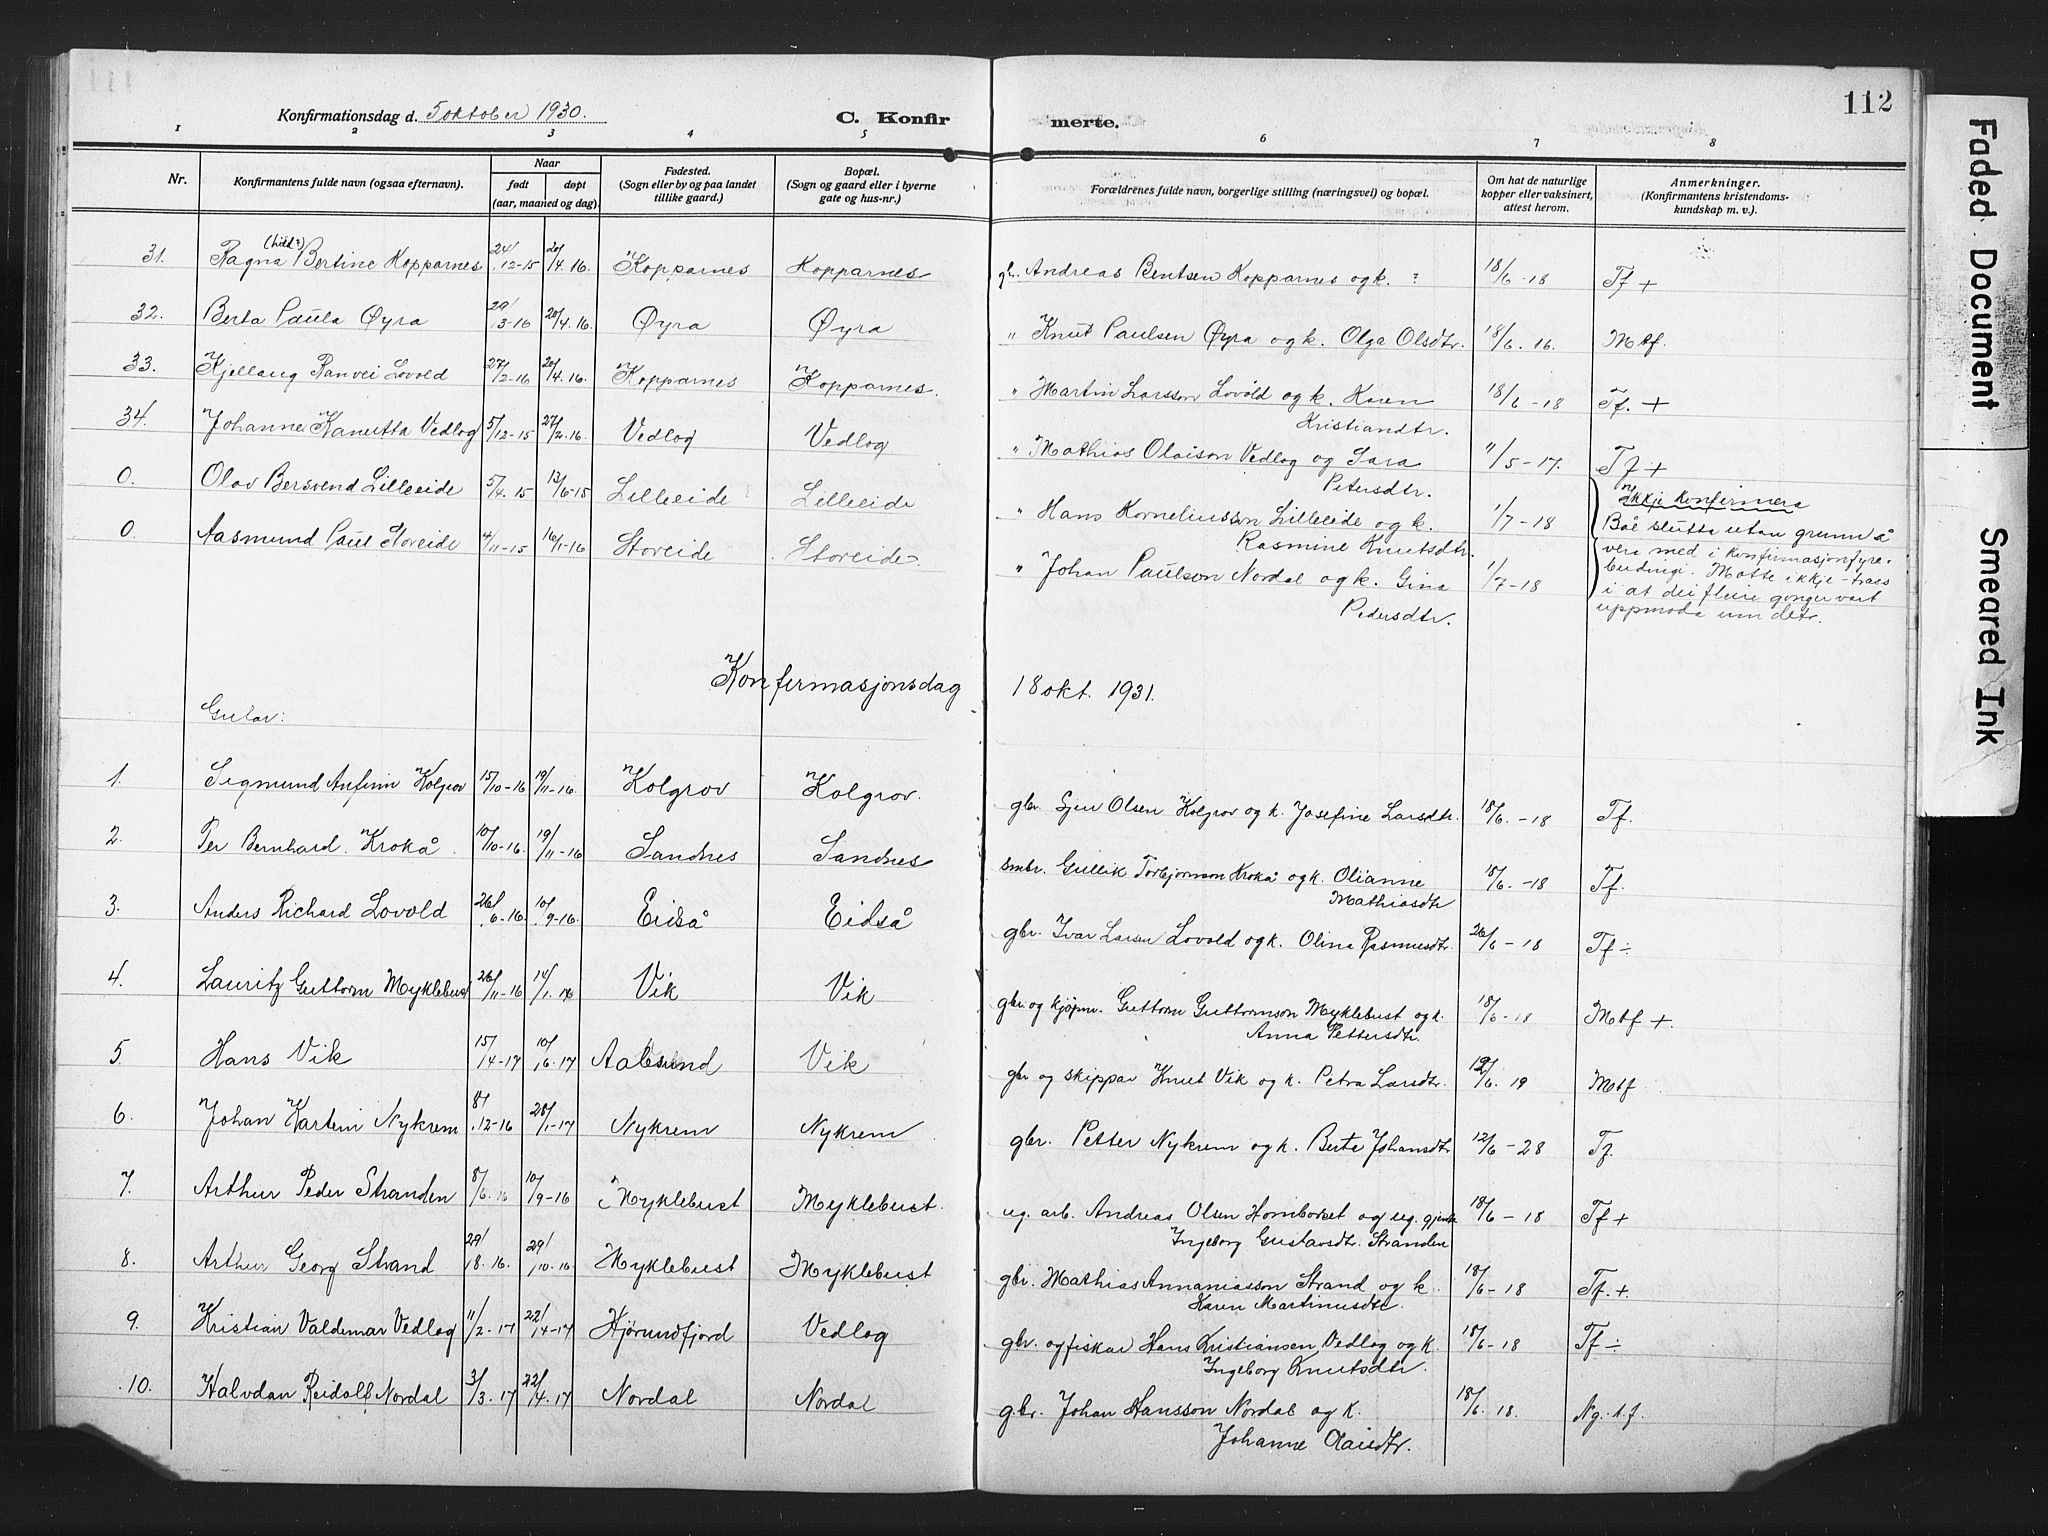 112
Konfirmationsdag d. 5 oktober 1930.
C. Konfirmerte.
1 2 3 4 5 6 7 8
Nr.
Konfirmantens fulde navn (ogsaa efternavn).
Naar
født døpt
(aar, maaned og dag).
Fødested.
(Sogn eller by og paa landet
tillike gaard.)
Bopæl.
(Sogn og gaard eller i byerne
gate og hus-nr.)
Forældrenes fulde navn, borgerlige stilling (næringsvei) og bopæl.
Om hat de naturlige
kopper eller vaksinert,
attest herom.
Anmerkninger.
(Konfirmantens kristendoms-
kundskap m. v.)
31. Ragna Bertine Kopparnes 24/12-15 20/4.16. Kopparnes Kopparnes gbr. Andreas Bentsen Kopparnes og k. ? 18/6-18 Tf +
32. Berta Paula Øyra 29/3-16 20/4.16. Øyra Øyra " Knut Paulsen Øyra og k. Olga Olsdtr. 18/6.16. Mtf.
33. Kjellaug Ranvei Lovold 27/2-16 20/4.16. Kopparnes Kopparnes. " Martin Larsson Lovold og k. Karen
Kristiandtr. 18/6-18 Tf. +
34. Johanne Kanutta Vedlog 5/12-15 27/2.16. Vedlog Vedlog " Mathias Olaison Vedlog og Sara
Petersdtr. 11/5-17. Tf +
0. Olav Bersvend Lilleeide 5/4.15 13/6-15 Lilleeide Lilleeide " Hans Korneliusson Lilleeide og k.
Rasmine Knutsdtr. 1/7-18
0. Aasmund Paul Storeide 4/11-15 16/1-16 Storeide Storeide. " Johan Paulson Nordal og k. Gina
Pedersdtr. 1/7-18
Ikkje konfirmera
Båe slutta utan grunn å
vera med i konfirmasjonfyre-
budingi. Møtte ikkje - trass
i at dei fleire gonger vart
uppmoda um det.
Konfirmasjonsdag 18 okt. 1931.
Gutar:
1. Sigmund Anfinn Kolgrov 15/10-16 19/11-16. Kolgrov Kolgrov. gbr. Sjur Olsen Kolgrov og k. Josefine Larsdtr. 18/6.-18 Tf.
2. Per Bernhard Krokå 10/10-16. 19/11-16 Sandnes Sandnes smbr. Gullik Torbjørnson Krokå og k. Olianne
Mathiasdtr 18/6.-18 Tf.
3. Anders Richard Lovold 26/6-16. 10/9-16 Eidså Eidså gbr. Ivar Larsen Lovold og k. Olina Rasmusdtr. 26/6-18 Tf ÷
4. Lauritz Guttorm Myklebust 26/11-16 14/1. Vik Vik gbr. og kjøpm. Guttorm Guttormson Myklebust og k.
Anna Pettersdtr. 18/6-18 Mtf +.
5. Hans Vik 15/4-17 10/6-17 Aalesund Vik gbr og skippar Knut Vik og k. Petra Larsdtr. 12/6.19 Mtf
6. Johan Martin Nykrem 8/12-16 28/1-17 Nykrem Nykrem gbr. Petter Nykrem og k. Berte Johansdtr 12/6-28 Tf.
7. Arthur Peder Stranden 8/6.16 10/9-16 Myklebust Myklebust. ug. arb. Andreas Olsen Hornborset og ug. gjenta
Ingeborg Gustavsdtr. Stranden 18/6-18 Tf +
8. Arthur Georg Strand 29/8.16. 29/10-16 Myklebust Myklebust gbr. Mathias Annaniasson Strand og k.
Karen Martinusdtr. 18/6-18 Tf. +.
9. Kristian Valdemar Vedlog 11/2.17 22/4-17 Hjørundfjord Vedlog gbr. og fiskar Hans Kristiansen Vedlog og k.
Ingeborg Knutsdtr. 18/6-18 Tf ÷
10. Halvdan Reidolf Nordal 3/3.17 22/4.17 Nordal Nordal gbr. Johan Hansson Nordal og k.
Johanne Olaisdtr. 18/6.18. Ng. t.f.
Faded Document
Smeared Ink